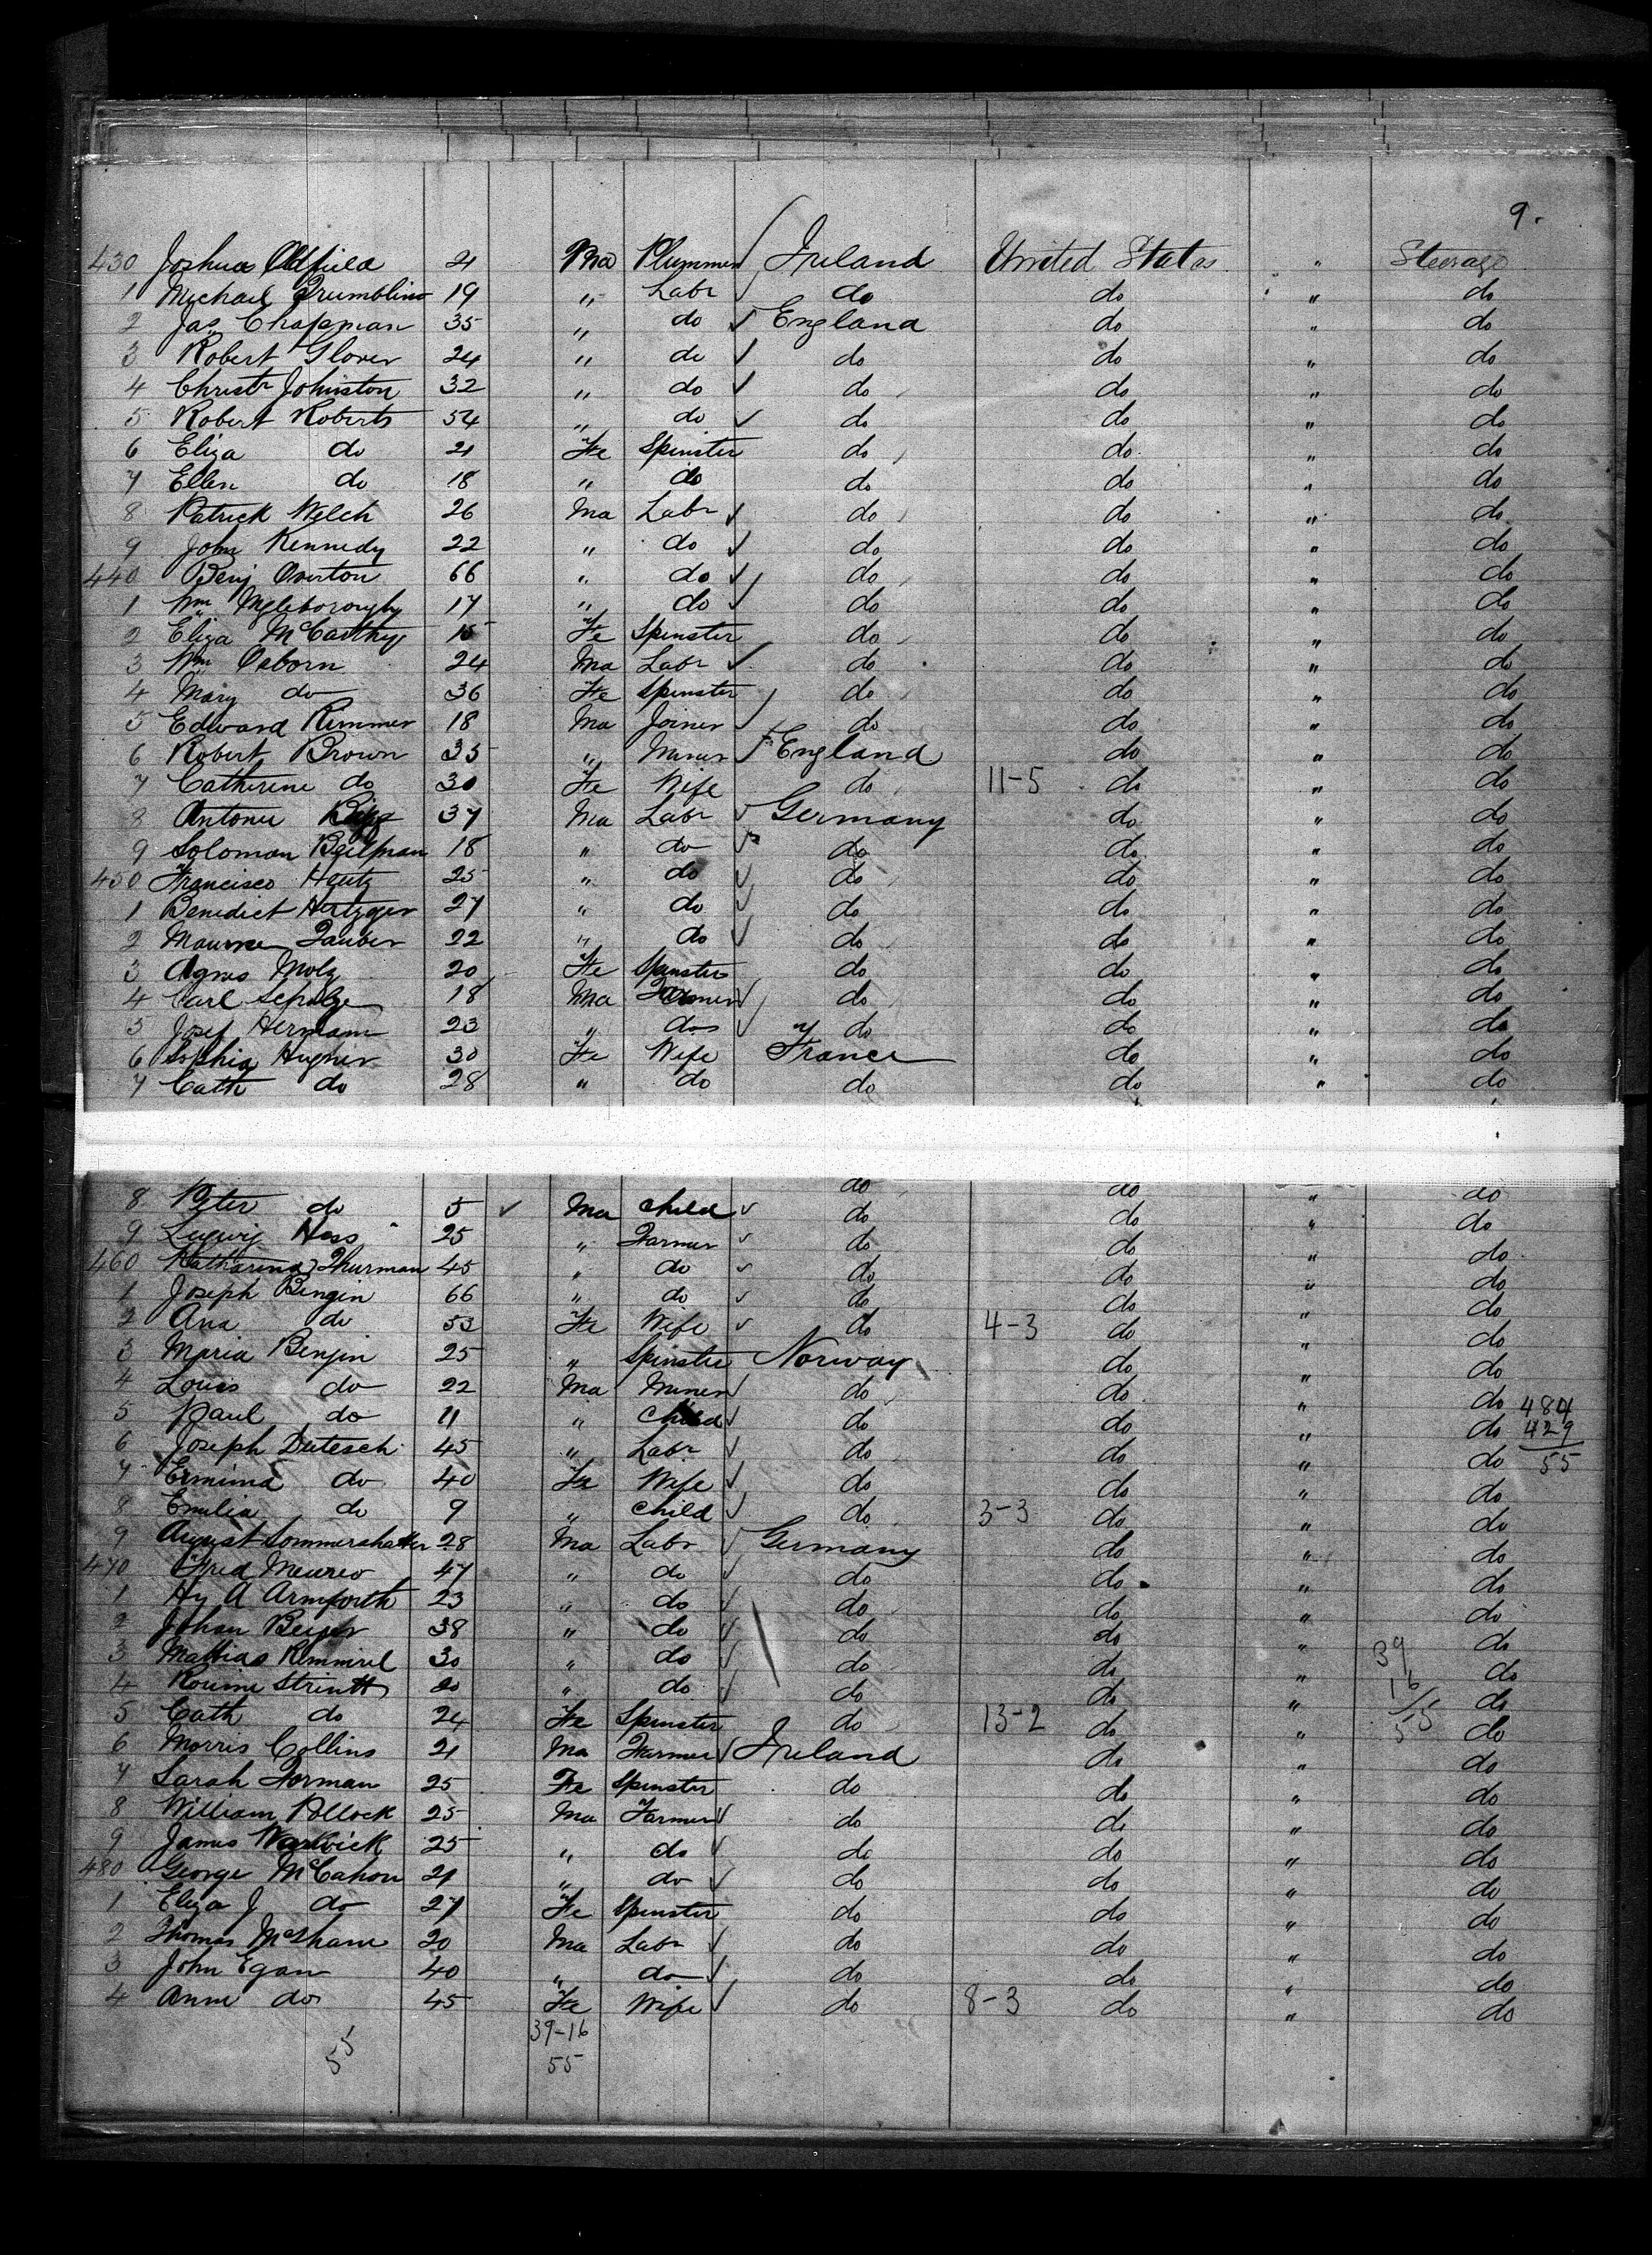 9.
430 Joshua Oldfield 21 Ma Plummer Ireland United States " Steerage
1 Michael Trumbling 19 " Labr do do " do
2 Jas Chapman 35 " do England do " do
3 Robert Glover 24 " do do do " do
4 Christr Johnston 32 " do do do " do
5 Robert Roberts 54 " do do do " do
6 Eliza do 21 Fe Spinster do do " do
7 Ellen do 18 " do do do " do
8 Patrick Welch 26 Ma Labr do do " do
9 John Kennedy 22 " do do do " do
440 Benj Overton 66 " do do do " do
1 Wm 17 " do do do " do
2 Eliza McCarthy 15 Fe Spinster do do " do
3 Wm Osborn 24 Ma Labr do do " do
4 Mary do 36 Fe Spinster do do " do
5 Edward Rimmer 18 Ma Joiner do do " do
6 Robert Brown 35 " Miner England do " do
7 Catherine do 30 Fe Wife do 11-5 do " do
8 Antonie 37 Ma Labr Germany do " do
9 Solomon Beilman 18 " do do do " do
450 Francisco Hentz 25 " do do do " do
1 Benedict Hertzger 27 " do do do " do
2 Maurice Tauber 22 " do do do " do
3 Agnes Molz 20 Fe Spinster do do " do
4 Carl Schulze 18 Ma Farmer do do " do
5 Josef Hermann 23 " do do do " do
6 Sophia Hugner 30 Fe Wife France do " do
7 Cath do 28 " do do do " do
8 Peter do 5 Ma Child do do " do
9 Ludwig Hess 25 " Farmer do do " do
460 Katharina Thurman 45 " do do do " do
1 Joseph Bengin 66 " do do do " do
2 Ana do 53 Fe Wife do 4-3 do " do
3 Maria Benjin 25 " Spinster Norway do " do
4 Louis do 22 Ma Miner do do " do 484
5 Paul do 11 " Child do do " do 429
6 Joseph Dutesch 45 " Labr do do " do 55
7 Ermina do 40 Fe Wife do do " do
8 Emilia do 9 " Child do 3-3 do " do
9 August 28 Ma Labr Germany do " do
470 Fred Meurer 47 " do do do " do
1 Hy A Armforth 23 " do do do " do
2 Johan Beiser 38 " do do do " do
3 Mattias Remmirel 30 " do do do " 39 do
4 20 " do do do " 16 do
5 Cath do 24 Fe Spinster do 13-2 do " 55 do
6 Morris Collins 21 Ma Farmer Ireland do " do
7 Sarah Gorman 25 Fe Spinster do do " do
8 William Pollock 25 Ma Farmer do do " do
9 James Warwick 25 " do do do " do
480 George McCahon 21 " do do do " do
1 Eliza J do 27 Fe Spinster do do " do
2 Thomas McShane 20 Ma Labr do do " do
3 John Egan 40 " do do do " do
4 Anne do 45 Fe Wife do 8-3 do " do
39-16
55 55